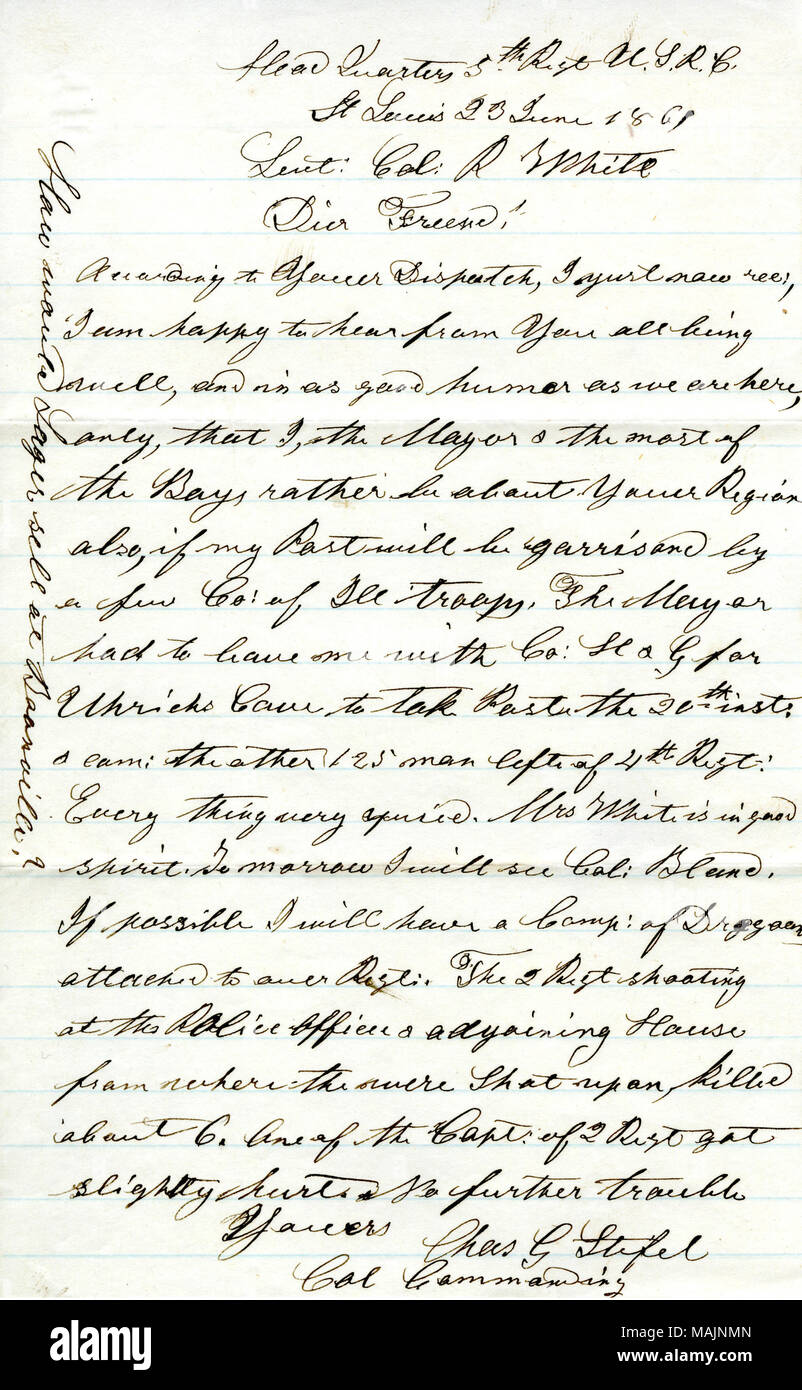 Head Quarters 5th Regt U. S. R. C.
St Louis 23 June 1861
Leut: Col: R White
Dier Freend!
According to Youer Dispatch, I yust now rec:,
I am happy to hear from You all being
well, and in as good humor as we are here,
only, that I, the Mayor & the most of
the Boys rather be about Youer Region
also, if my Post will be garrisond by
a few Co: of Ill troops. The Mayor
had to leave me with Co: H & G for
Uhrichs Cave to tak Poste the 20th inst:
& com: the other 125 man left of 4th Regt:
Every thing very quied. Mrs White is in good
spirit. To morrow I will see Col: Bland.
If possible I will have a Comp: of Dragoons
attached to ouer Regt:. The 2 Regt shooting
at the Police office & adyoining House
from where the were Shot upon, killed
about 6. One of the Capt: of 2 Regt got
slightly hurt. No further trouble
Youers
Chas G Stifel
Col Commanding
How would Lager sell at Boonville,?
alamy
Image ID: MAJNMN
www.alamy.com